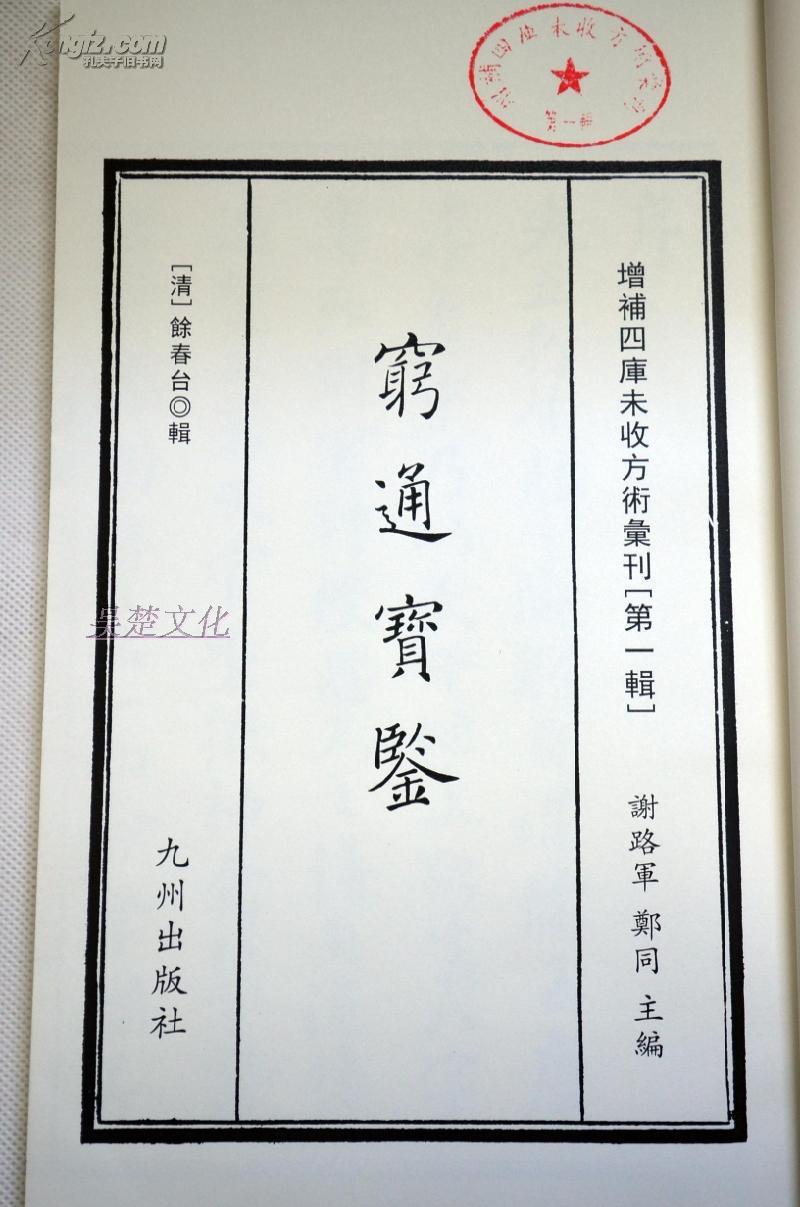 Kongfz.com
孔夫子旧书网
增補四庫未收方術彙刊
第一輯
增補四庫未收方術彙刊[第一輯]
謝路軍 鄭同 主編
窮通寶鋻
[清]餘春台◎輯
九州出版社
吳楚文化